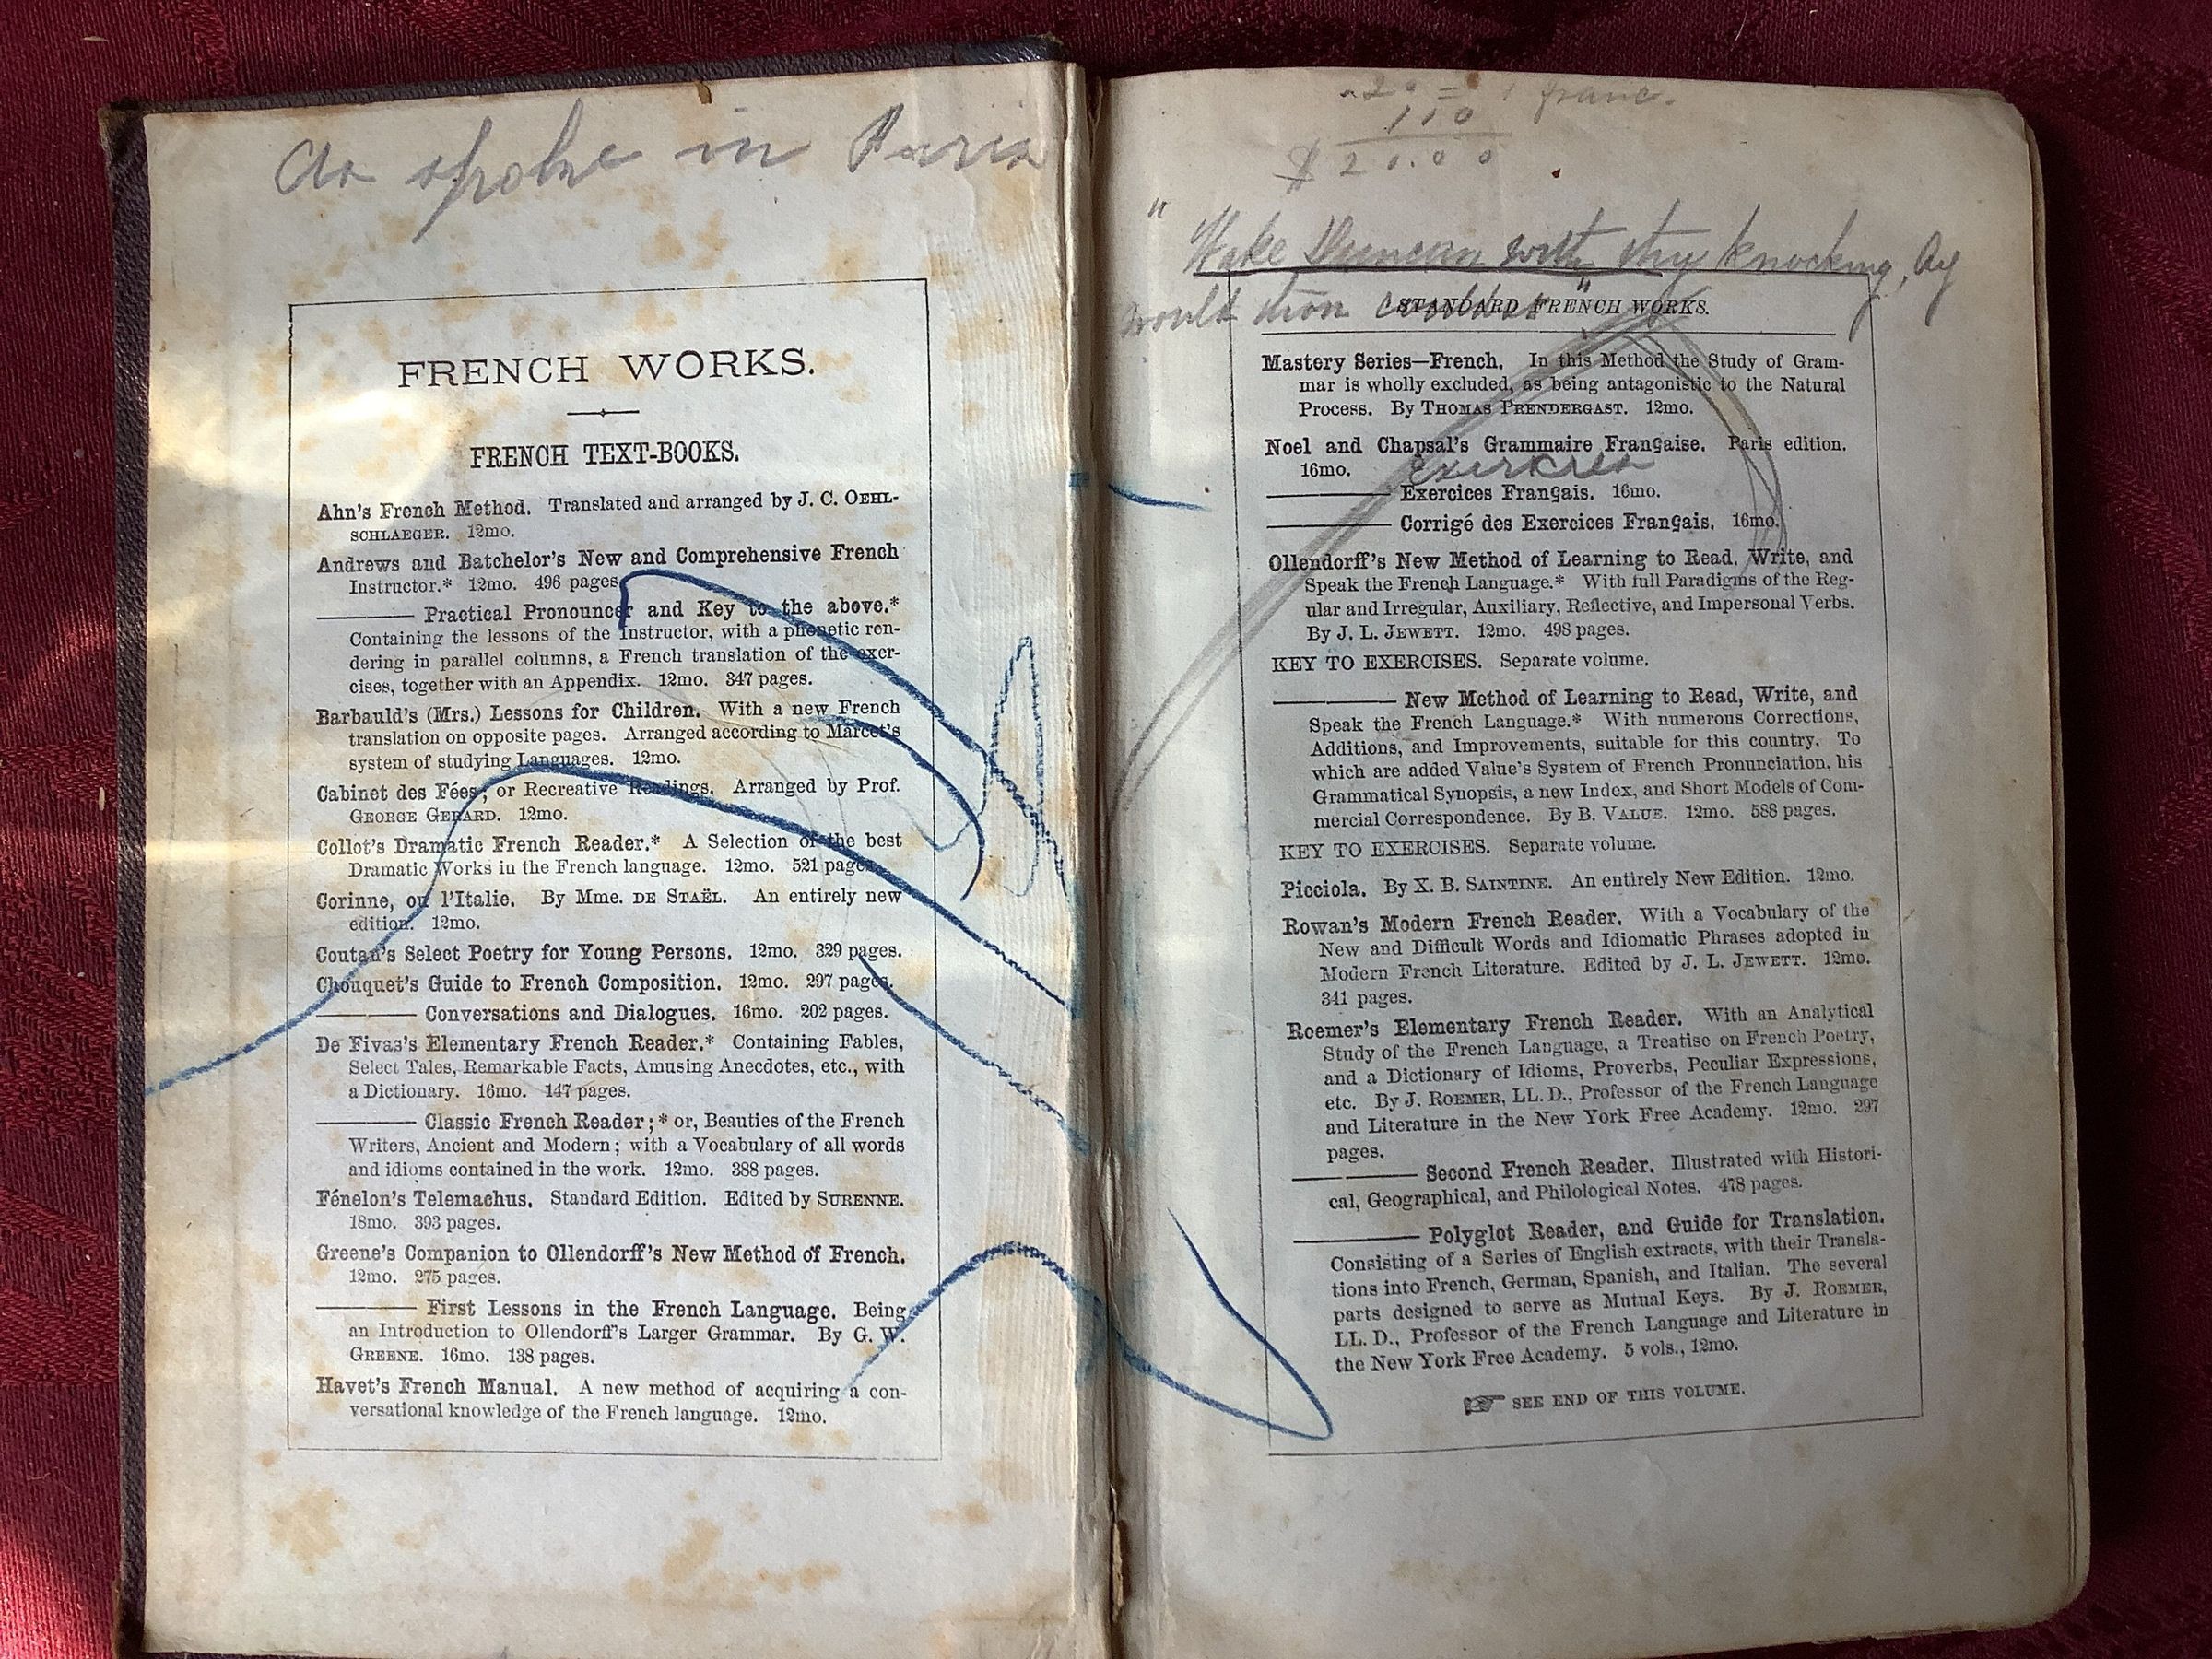 As spoke in Paris
FRENCH WORKS.
FRENCH TEXT-BOOKS.
Ahn's French Method. Translated and arranged by J. C. OEHL-
SCHLAEGER. 12mo.
Andrews and Batchelor's New and Comprehensive French
Instructor.* 12mo. 496 pages.
——— Practical Pronouncer and Key to the above.*
Containing the lessons of the Instructor, with a phonetic ren-
dering in parallel columns, a French translation of the exer-
cises, together with an Appendix. 12mo. 347 pages.
Barbauld's (Mrs.) Lessons for Children. With a new French
translation on opposite pages. Arranged according to Marcet's
system of studying Languages. 12mo.
Cabinet des Fées; or Recreative Readings. Arranged by Prof.
GEORGE GERARD. 12mo.
Collot's Dramatic French Reader.* A Selection of the best
Dramatic Works in the French language. 12mo. 521 pages.
Corinne, ou l'Italie. By Mme. DE STAËL. An entirely new
edition. 12mo.
Coutan's Select Poetry for Young Persons. 12mo. 329 pages.
Chouquet's Guide to French Composition. 12mo. 297 pages.
——— Conversations and Dialogues. 16mo. 202 pages.
De Fivas's Elementary French Reader.* Containing Fables,
Select Tales, Remarkable Facts, Amusing Anecdotes, etc., with
a Dictionary. 16mo. 147 pages.
——— Classic French Reader;* or, Beauties of the French
Writers, Ancient and Modern; with a Vocabulary of all words
and idioms contained in the work. 12mo. 388 pages.
Fénelon's Telemachus. Standard Edition. Edited by SURENNE.
18mo. 393 pages.
Greene's Companion to Ollendorff's New Method of French.
12mo. 275 pages.
——— First Lessons in the French Language. Being
an Introduction to Ollendorff's Larger Grammar. By G. W.
GREENE. 16mo. 138 pages.
Havet's French Manual. A new method of acquiring a con-
versational knowledge of the French language. 12mo.
.20 = 1 franc.
110
$ 20.00
"Wake Duncan with thy knocking, Ay
would thou couldst"
STANDARD FRENCH WORKS.
Mastery Series—French. In this Method the Study of Gram-
mar is wholly excluded, as being antagonistic to the Natural
Process. By THOMAS PRENDERGAST. 12mo.
Noel and Chapsal's Grammaire Française. Paris edition.
16mo.
——— Exercices Français. 16mo.
——— Corrigé des Exercices Français. 16mo.
Ollendorff's New Method of Learning to Read, Write, and
Speak the French Language.* With full Paradigms of the Reg-
ular and Irregular, Auxiliary, Reflective, and Impersonal Verbs.
By J. L. JEWETT. 12mo. 498 pages.
KEY TO EXERCISES. Separate volume.
——— New Method of Learning to Read, Write, and
Speak the French Language.* With numerous Corrections,
Additions, and Improvements, suitable for this country. To
which are added Value's System of French Pronunciation, his
Grammatical Synopsis, a new Index, and Short Models of Com-
mercial Correspondence. By B. VALUE. 12mo. 588 pages.
KEY TO EXERCISES. Separate volume.
Picciola. By X. B. SAINTINE. An entirely New Edition. 12mo.
Rowan's Modern French Reader. With a Vocabulary of the
New and Difficult Words and Idiomatic Phrases adopted in
Modern French Literature. Edited by J. L. JEWETT. 12mo.
341 pages.
Roemer's Elementary French Reader. With an Analytical
Study of the French Language, a Treatise on French Poetry,
and a Dictionary of Idioms, Proverbs, Peculiar Expressions,
etc. By J. ROEMER, LL. D., Professor of the French Language
and Literature in the New York Free Academy. 12mo. 297
pages.
——— Second French Reader. Illustrated with Histori-
cal, Geographical, and Philological Notes. 478 pages.
——— Polyglot Reader, and Guide for Translation.
Consisting of a Series of English extracts, with their Transla-
tions into French, German, Spanish, and Italian. The several
parts designed to serve as Mutual Keys. By J. ROEMER,
LL. D., Professor of the French Language and Literature in
the New York Free Academy. 5 vols., 12mo.
☞ SEE END OF THIS VOLUME.